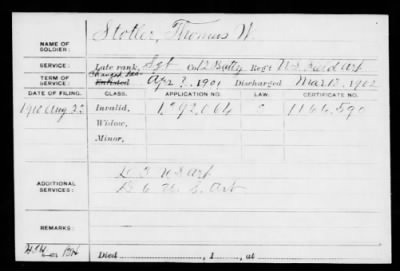 Stotler, Thomas W.
NAME OF SOLDIER:
SERVICE: Late rank, Sgt Co. 12 Batty, Reg't U.S. Field Art
TERM OF SERVICE: Enlisted Apr 2, 1901 Discharged Mar 13, 1902
DATE OF FILING. CLASS. APPLICATION NO. LAW. CERTIFICATE NO.
1910 Aug 22 Invalid, 1,392,064 1166,590
Widow,
Minor,
ADDITIONAL SERVICES:
U S Art
U. S. Art
REMARKS:
Died, 1, at